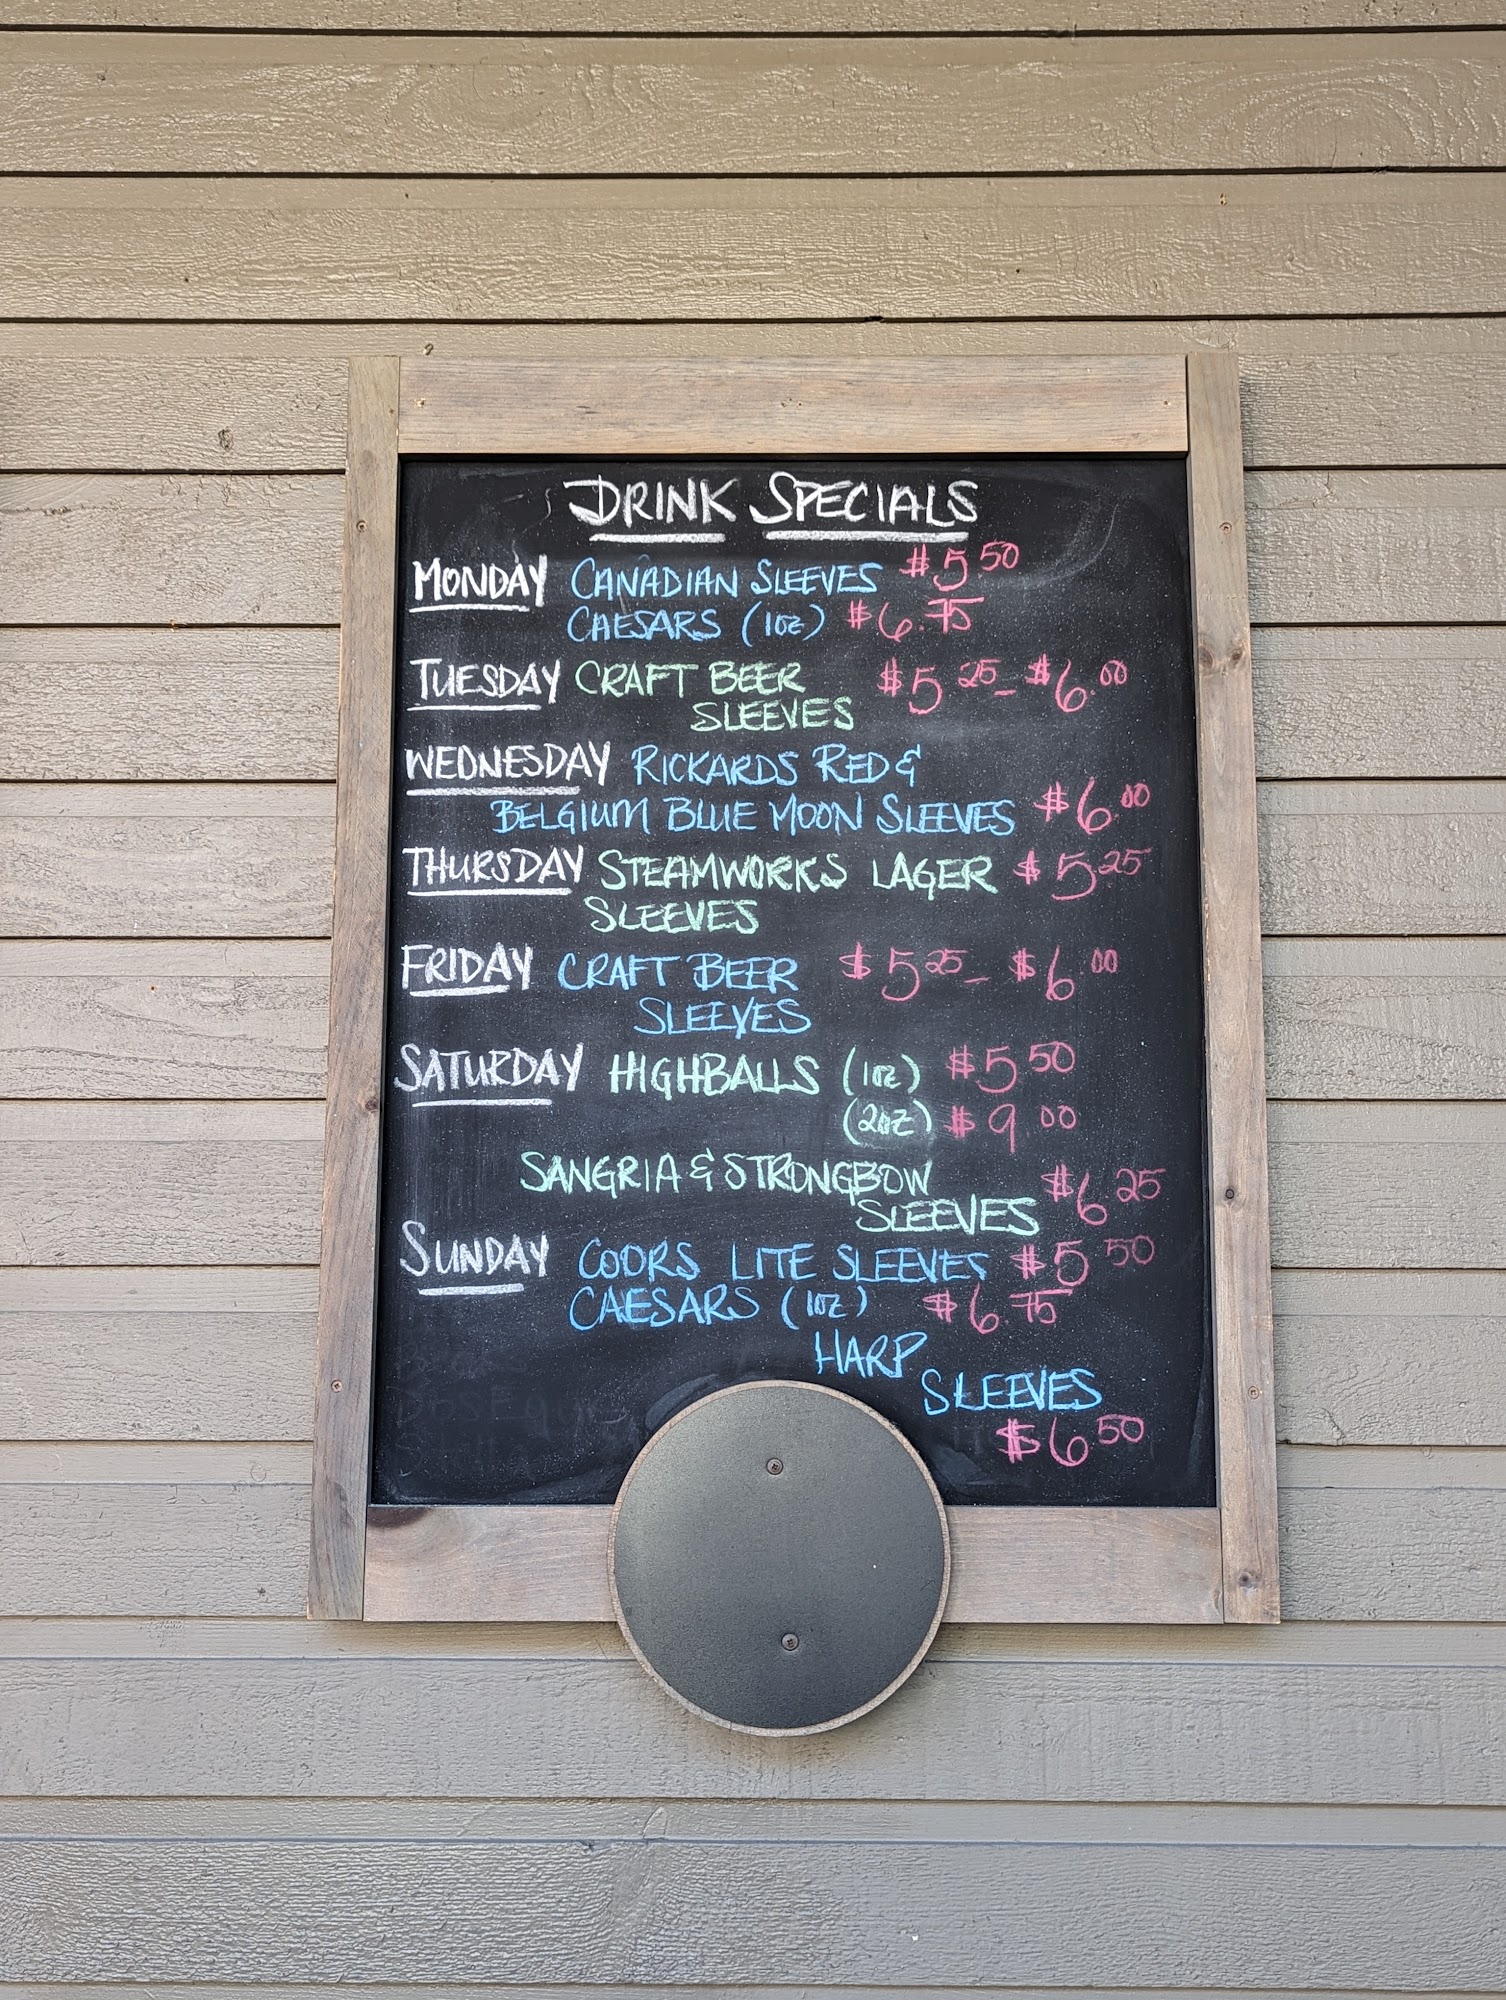 DRINK SPECIALS
MONDAY CANADIAN SLEEVES $5.50
CAESARS (1oz) $6.75
TUESDAY CRAFT BEER $5.25 - $6.00
SLEEVES
WEDNESDAY RICKARDS RED &
BELGIUM BLUE MOON SLEEVES $6.00
THURSDAY STEAMWORKS LAGER $5.25
SLEEVES
FRIDAY CRAFT BEER $5.25 - $6.00
SLEEVES
SATURDAY HIGHBALLS (1oz) $5.50
(2oz) $9.00
SANGRIA & STRONGBOW
SLEEVES $6.25
SUNDAY COORS LITE SLEEVES $5.50
CAESARS (1oz) $6.75
HARP
SLEEVES
$6.50